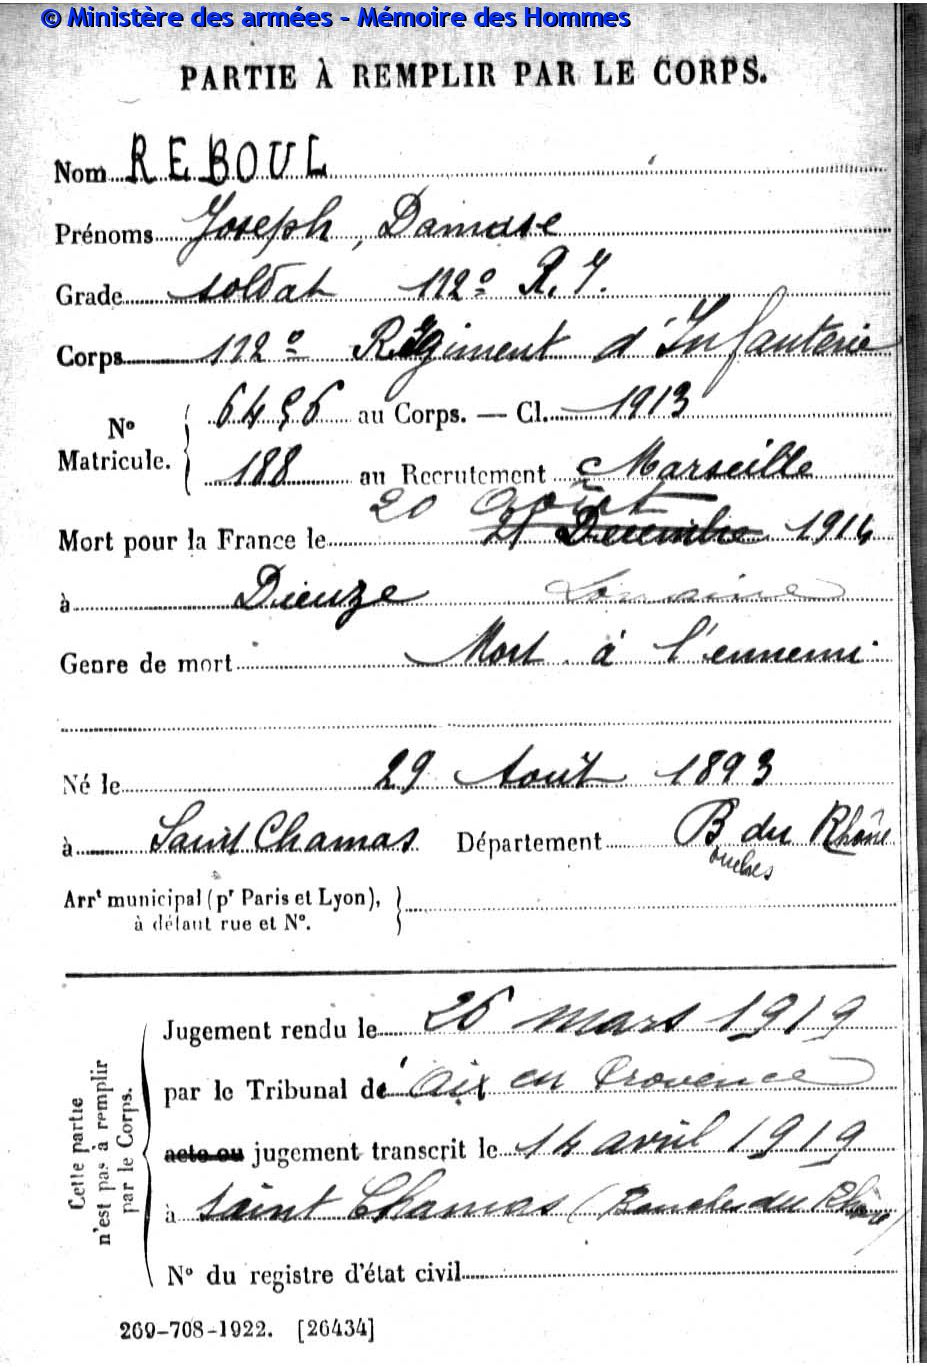 © Ministère des armées - Mémoire des Hommes
PARTIE À REMPLIR PAR LE CORPS.
Nom REBOUL
Prénoms Joseph, Damase
Grade soldat 112e R.I.
Corps 112e Régiment d'Infanterie
N° Matricule. 6456 au Corps. — Cl. 1913
188 au Recrutement Marseille
20 août
Mort pour la France le 21 Décembre 1914
à Dieuze Lorraine
Genre de mort Mort à l'ennemi
Né le 29 Août 1893
à Saint Chamas Département B du Rhône
ouches
Arrt municipal (pr Paris et Lyon),
à défaut rue et N°.
Cette partie
n'est pas à remplir
par le Corps.
Jugement rendu le 26 mars 1919
par le Tribunal de Aix en Provence
acte ou jugement transcrit le 14 avril 1919
à Saint Chamas (Bouches du Rhône)
N° du registre d'état civil
269-708-1922. [26434]